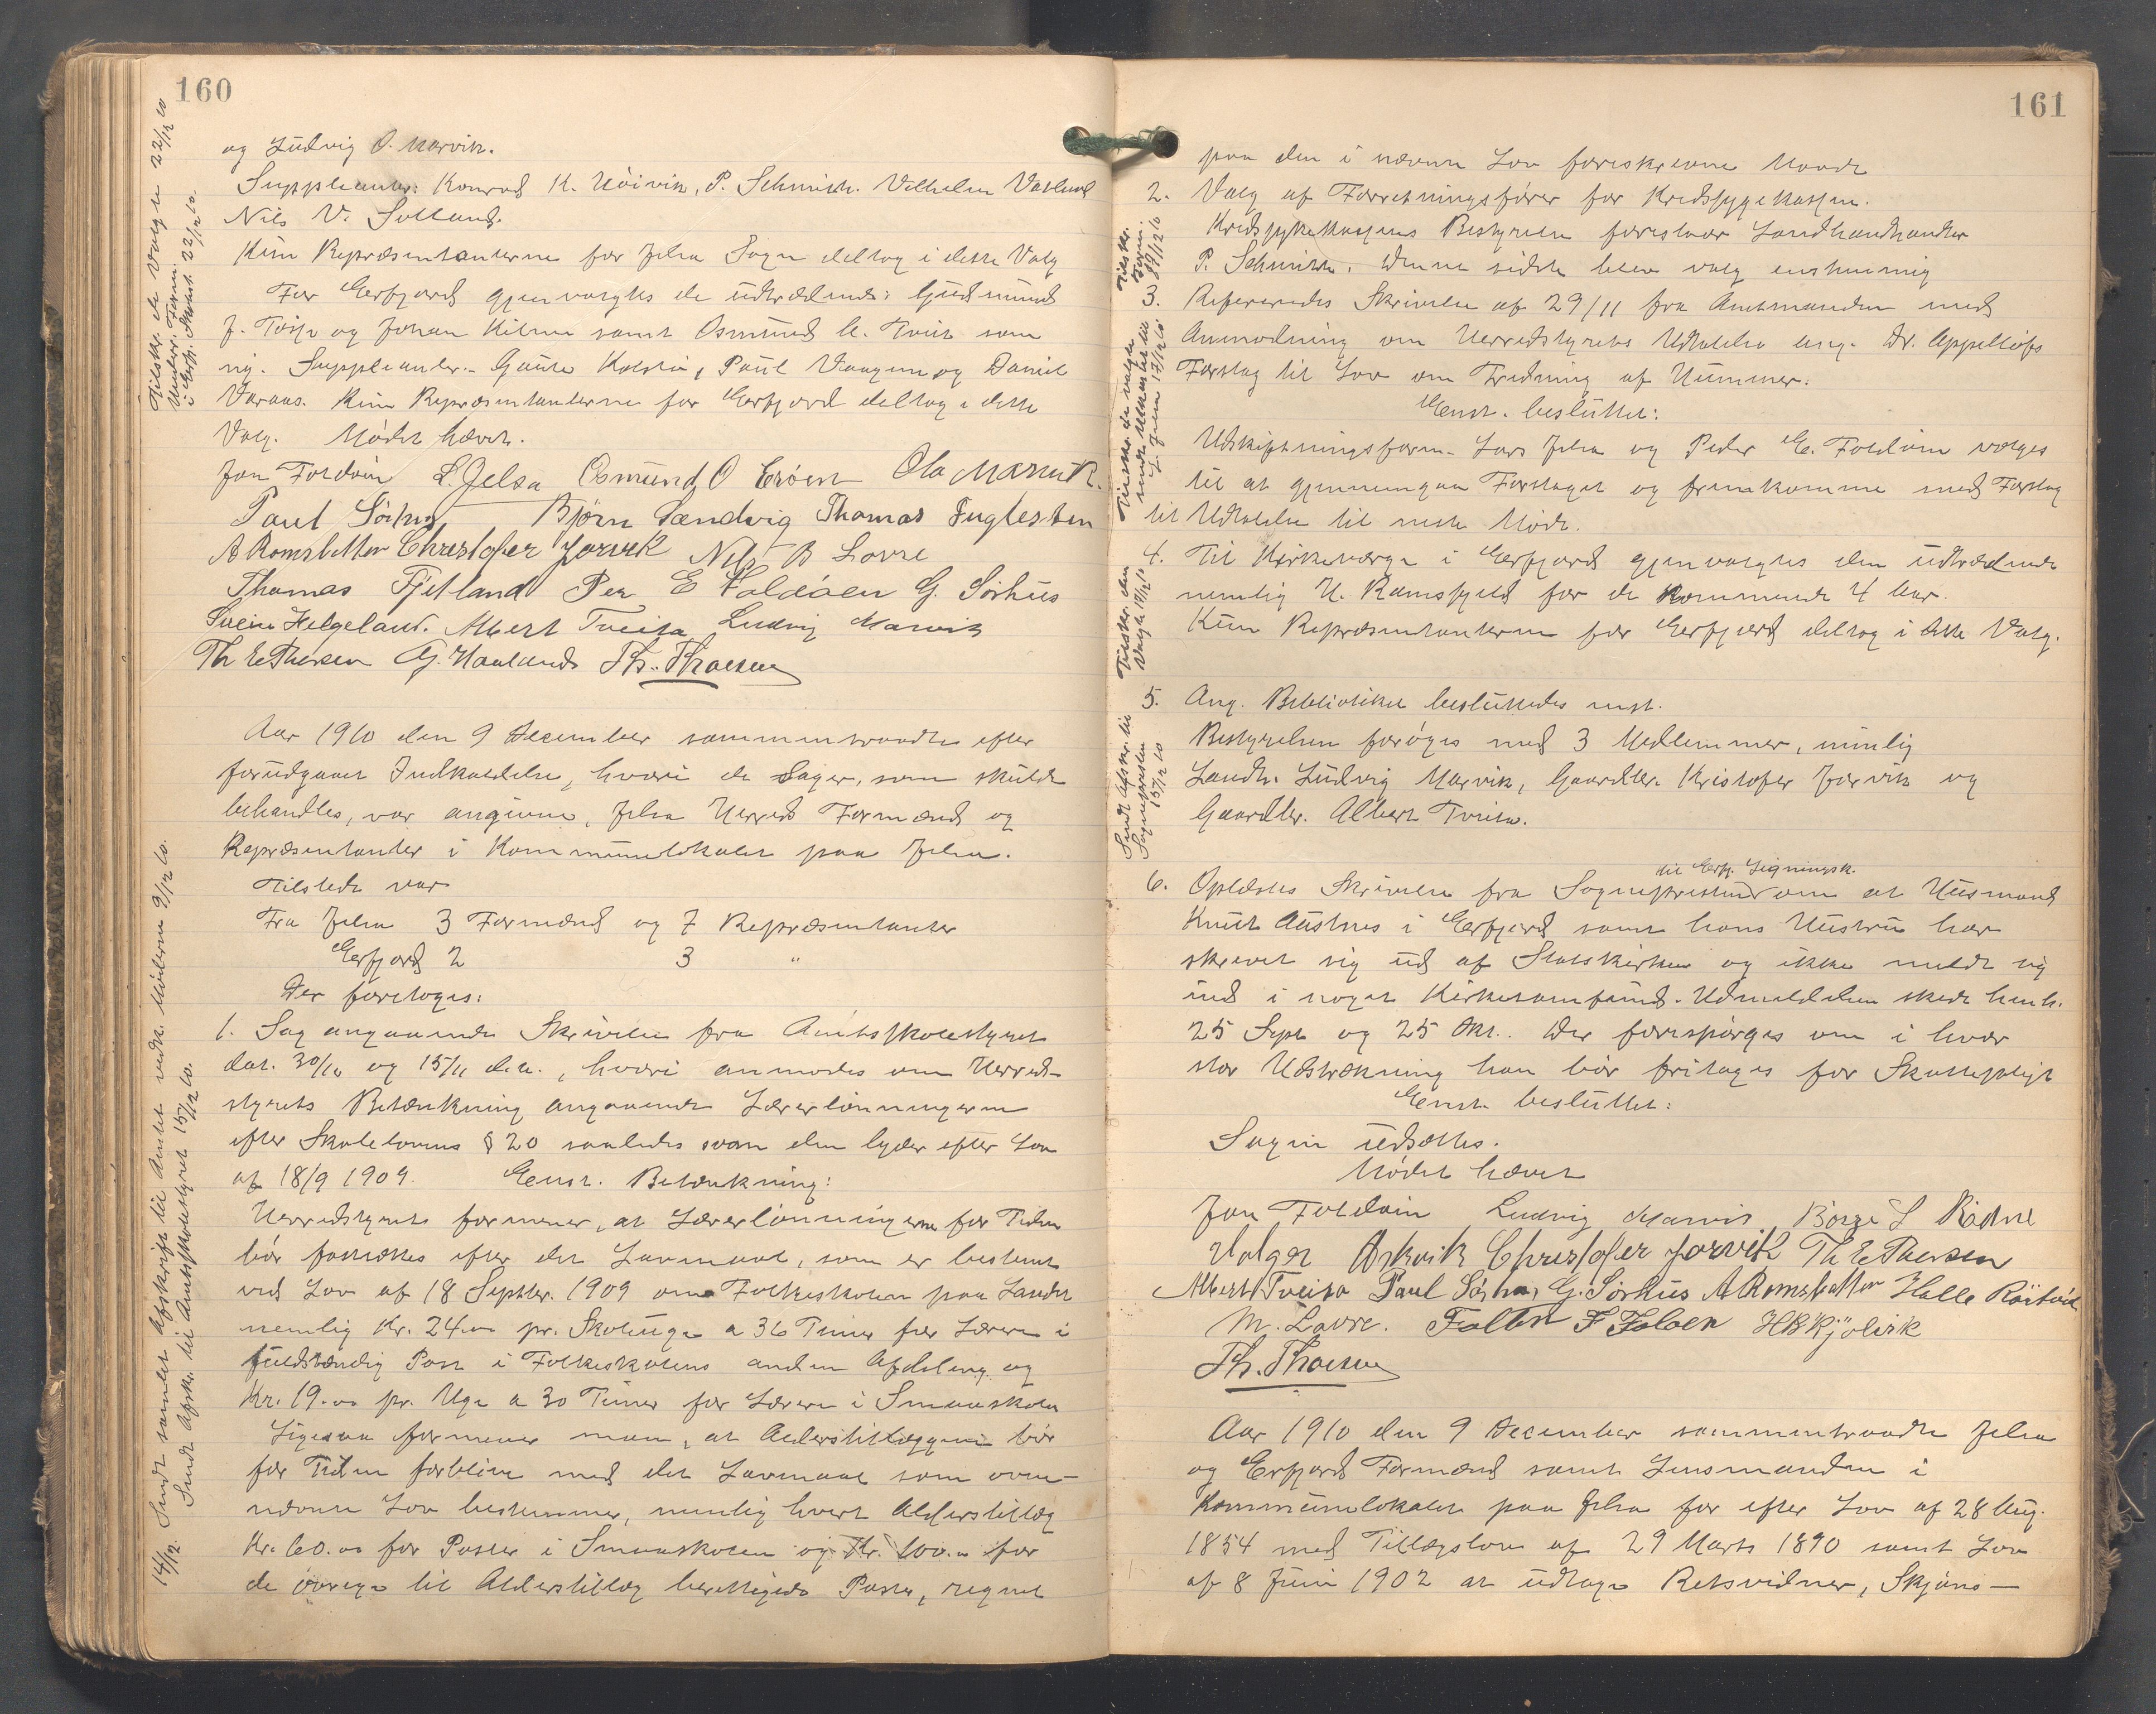 160
og Ludvig O. Marvik.
Suppleanter: Konrad K. Høivik, P. Schmidt. Vilhelm Vatland
Nils V. Solland.
Kun Repræsentanterne for Jelsa Sogn deltog i dette Valg
For Erfjord gjenvalgtes de udtrædende: Gudmund
J. Tøsse og Johan Hilme samt Osmund L. Tveit som
ny. Suppleanter.- Gaute Kolstø, Paul Vaagene og Daniel
Varaas. Kun Repræsentanterne for Erfjord deltog i dette
Valg. Mødet hævet.
Jon Foldøin L. Jelsa Osmund O Erøen Ola Marvik.
Paul Sørhus Bjørn Sandvig Thomas Fuglesten
A Romsbotten Christofer Jørvik Nils B Lovre
Thomas Fjetland Per E Foldøen G. Sørhus
Svein Helgeland. Albert Tveita Ludvig Marvik
Th E Thersen G. Haaland Th. Thoesen
Aar 1910 den 9 December sammentraadte efter
forudgaaet Indkaldelse, hvori de Sager, som skulde
behandles, var angivne, Jelsa Herreds Formænd og
Repræsentanter i Kommunelokalet paa Jelsa.
Tilstede var
Fra Jelsa 3 Formænd og 7 Repræsentanter
Erfjord 2 3 "
Der foretoges:
1. Sag angaaende Skrivelse fra Amtsskolestyret
dat. 30/10 og 15/11 d.a., hvori anmodes om Herreds-
styrets Betænkning angaaende Lærerlønningerne
efter Skolelovens § 20 saaledes som den lyder efter Lov
af 18/9 1909. Enst. Betænkning:
Herredstyret formener, at Lærerlønningerne for Tiden
bør fastsættes efter det Lavmaal, som er bestemt
ved Lov af 18 Septbr. 1909 om Folkeskolen paa Landet
nemlig Kr. 24.00 pr. Skoleuge a 36 Timer for Lærere i
fuldstændig Post i Folkeskolens anden Afdeling og
Kr. 19.00 pr. Uge a 30 Timer for Lærere i Smaaskolen
Ligesaa formener man, at Alderstillæggene bør
for Tiden forblive med det Lavmaal som oven-
nævnte Lov bestemmer, nemlig hvert Alderstillæg
Kr. 60.00 for Poster i Smaaskolen og Kr. 100.00 for
de øvrige til Alderstillæg berettigede Poster, regnet
Tilskr. de Valgte 22/12 10
Underr. Form.
i Erfj. Skolest. 22/12 10.
14/12. Sendt samlet Afskrift til Amtet vedk. Møderne 9/12 10.
Sendt Afskr. til Amtsskolestyret 15/12 10.
161
paa den i nævnte Lov foreskrevne Maade
2. Valg af Forretningsfører for Kredssygekassen.
Kredssykekassens Bestyrelse foreslaar Landhandler
P. Schmidt. Denne sidste blev valg enstemmig
3. Refereredes Skrivelse af 29/11 fra Amtmanden med
Anmodning om Herredstyrets Udtalelse ang. Dr. Appelløfs
Forslag til Lov om Fredning af Hummer.
Enst. besluttet:
Udskiftningsform. Lars Jelsa og Peder E. Foldøin vælges
til at gjennemgaa Forslaget og fremkomme med Forslag
til Udtalelse til neste Møde.
4. Til Kirkeværge i Erfjord gjenvalgtes den udtrædende
nemlig H. Ramsfjeld for de kommende 4 Aar.
Kun Repræsentanterne for Erfjord deltog i dette Valg.
5. Ang. Biblioteket besluttedes enst.
Bestyrelsen forøges med 3 Medlemmer, nemlig
Landh. Ludvig Marvik, Gaardbr. Kristofer Jørvik og
Gaardbr. Albert Tveita.
til Erfj. Ligningsk.
6. Oplæstes Skrivelse fra Sognepresten om at Husmand
Knut Austnes i Erfjord samt hans Hustru har
skrevet sig ud af Statskirken og ikke meldt sig
ind i noget Kirkesamfund. Udmeldelsen skede henh.
25 Sept og 25 Okt. Der forespørges om i hvor
stor Udstrækning han bør fritages for Skattepligt
Enst. besluttet:
Sagen udsættes.
Mødet hævet
Jon Foldøin Ludvig Marvik Børge S Rødne
Holger Askvik Christofer Jørvik Th E Thersen
Albert Tveita Paul Sørhus G. Sørhus A Romsbotten Halle
M. Lovre. H B Kjølvik
Th. Thoesen
Aar 1910 den 9 December sammentraadte Jelsa
og Erfjord Formænd samt Lensmanden i
Kommunelokalet paa Jelsa for efter Lov af 28 Aug.
1854 med Tillægslove af 29 Marts 1890 samt Lov
af 8 Juni 1902 at udtage Retsvidner, Skjøns-
Tilskr.
Form.
17/12 10
Tilskr. de valgte
L. Jelsa 17/12 10.
Tilskr. den
Valgte 17/12 10
Sendt Afskr. til
Sognepresten
15/12 10